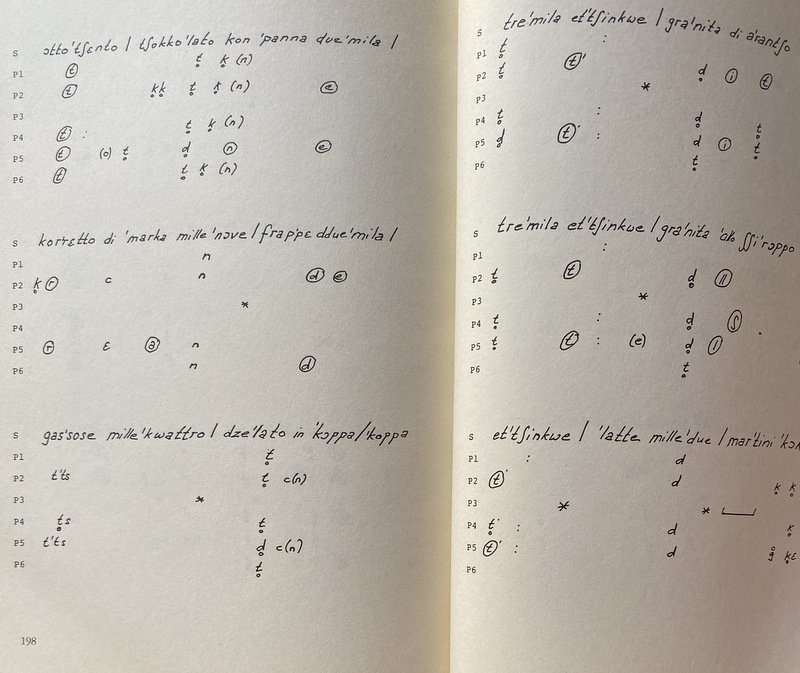 S ɔtto'tʃɛnto / tʃokko'lato kon 'panna due'mila /
P1 ⓣ t̥ k̥ (n)
P2 ⓣ kk t̥ k̥ (n) ⓔ
P3
P4 ⓣ : t̥ k̥ (n)
P5 ⓣ (o) t̥ d̥ ⓝ ⓔ
P6 ⓣ t̥ k̥ (n)
S korrɛtto di 'marka mille'nɔve / frap'pɛ ddue'mila /
P1 n
P2 k̥ ⓡ c n ⓓ ⓔ
P3 *
P4
P5 ⓡ ɛ ⓐ n
P6 n ⓓ
S gas'sose mille'kwattro / dze'lato in 'kɔppa / 'koppa
P1 t̥
P2 t'ts t̥ c(n)
P3 *
P4 t̥s t̥
P5 t'ts d̥ c(n)
P6 t̥
198
S tre'mila et'tʃinkwe / gra'nita di a'rantʃo
P1 t̥ :
P2 t̥ ⓣ' d̥ ⓘ ⓣ
P3 *
P4 t̥ : d̥
P5 d̥ ⓣ' : d̥ ⓘ t̥
P6 t̥
S tre'mila et'tʃinkwe / gra'nita 'allo ʃʃi'rɔppo
P1 :
P2 t̥ ⓣ d̥
P3 *
P4 t̥ : d̥ ʃ
P5 t̥ ⓣ' : (e) d̥
P6 t̥
S et'tʃinkwe / 'latte mille'due / mar'tini
P1 : d
P2 ⓣ' d k̥ k̥
P3 * *
P4 t̥' : d k̥
P5 ⓣ' : d g̥
P6